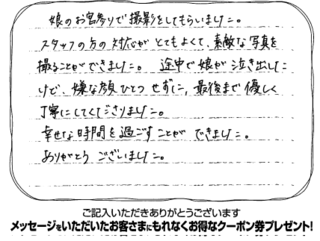 娘のお宮参りで撮影をしてもらいました。
スタッフの方の対応がとてもよくて、素敵な写真を
撮ることができました。 途中で娘が泣き出した
けど、嫌な顔ひとつせずに、最後まで優しく
丁寧にしてくださりました。
幸せな時間を過ごすことができました。
ありがとうございました。
ご記入いただきありがとうございます
メッセージをいただいたお客さまにもれなくお得なクーポン券プレゼント!